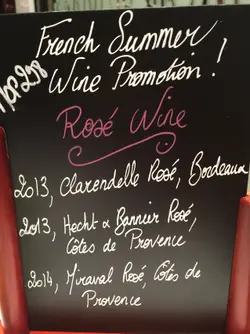 French Summer
Wine Promotion!
Rosé Wine
2013, Clarendelle Rosé, Bordeaux
2013, Hecht & Bannier Rosé,
Côtes de Provence
2014, Miraval Rosé, Côtes de
Provence